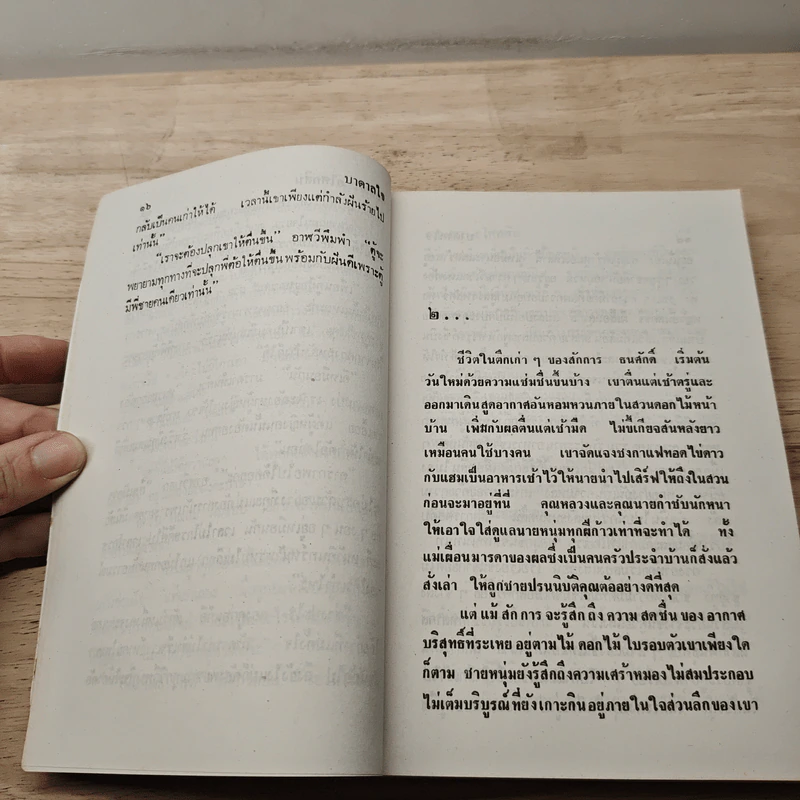 ๑๖
บาดาลใจ
กลับเป็นคนเก่าให้ได้ เวลานี้เขาเพียงแต่กำลังฝันร้ายไป
เท่านั้น”
“เราจะต้องปลุกเขาให้ตื่นขึ้น” อาฬวีพึมพำ “ตู้จะ
พยายามทุกทางที่จะปลุกพี่ต้อให้ตื่นขึ้นพร้อมกับฝันดีเพราะตู้
มีพี่ชายคนเดียวเท่านั้น”
๒...
ชีวิตในตึกเก่า ๆ ของสักการ ธนศักดิ์ เริ่มต้น
วันใหม่ด้วยความแช่มชื่นขึ้นบ้าง เขาตื่นแต่เช้าตรู่และ
ออกมาเดินสูดอากาศอันหอมหวนภายในสวนดอกไม้หน้า
บ้าน เพิ่มกับผลตื่นแต่เช้ามืด ไม่ขี้เกียจสันหลังยาว
เหมือนคนใช้บางคน เขาจัดแจงชงกาแฟทอดไข่ดาว
กับแฮมเป็นอาหารเช้าไว้ให้นายนำไปเสิร์ฟให้ถึงในสวน
ก่อนจะมาอยู่ที่นี่ คุณหลวงและคุณนายกำชับนักหนา
ให้เอาใจใส่ดูแลนายหนุ่มทุกฝีก้าวเท่าที่จะทำได้ ทั้ง
แม่เผื่อนมารดาของผลซึ่งเป็นคนครัวประจำบ้านก็สั่งแล้ว
สั่งเล่า ให้ลูกชายปรนนิบัติคุณต้ออย่างดีที่สุด
แต่ แม้ สัก การ จะรู้สึก ถึง ความ สดชื่น ของ อากาศ
บริสุทธิ์ที่ระเหย อยู่ตามไม้ ดอกไม้ ใบรอบตัวเขาเพียงใด
ก็ตาม ชายหนุ่มยังรู้สึกถึงความเศร้าหมองไม่สมประกอบ
ไม่เต็มบริบูรณ์ ที่ยัง เกาะกิน อยู่ภายในใจส่วนลึกของเขา